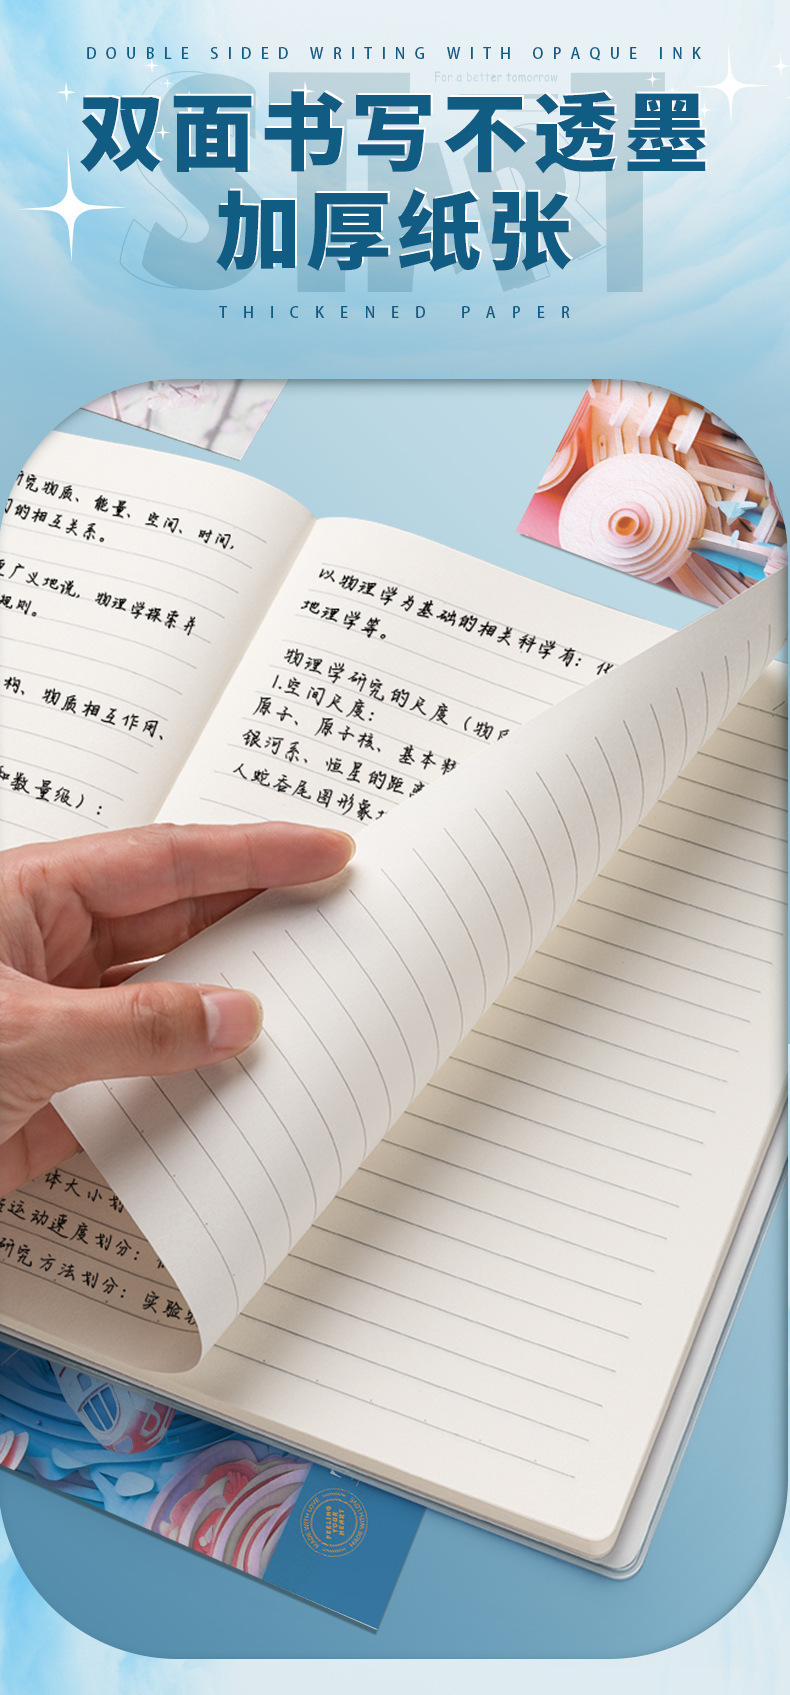 DOUBLE SIDED WRITING WITH OPAQUE INK
For a better tomorrow
START
双面书写不透墨
加厚纸张
THICKENED PAPER
研究物质、能量、空间、时间,
的相互关系。
广义地说, 物理学探索并
规则。
构、物质相互作用、
和数量级):
以物理学为基础的相关科学有:
地理学等。
物理学研究的尺度(物
1.空间尺度:
原子、原子核、基本
银河系、恒星的距离
人蛇吞尾图形象
体大小划
运动速度划分:
研究方法划分: 实验物
MADE WITH LOVE
FEELING
YOUR
HEART